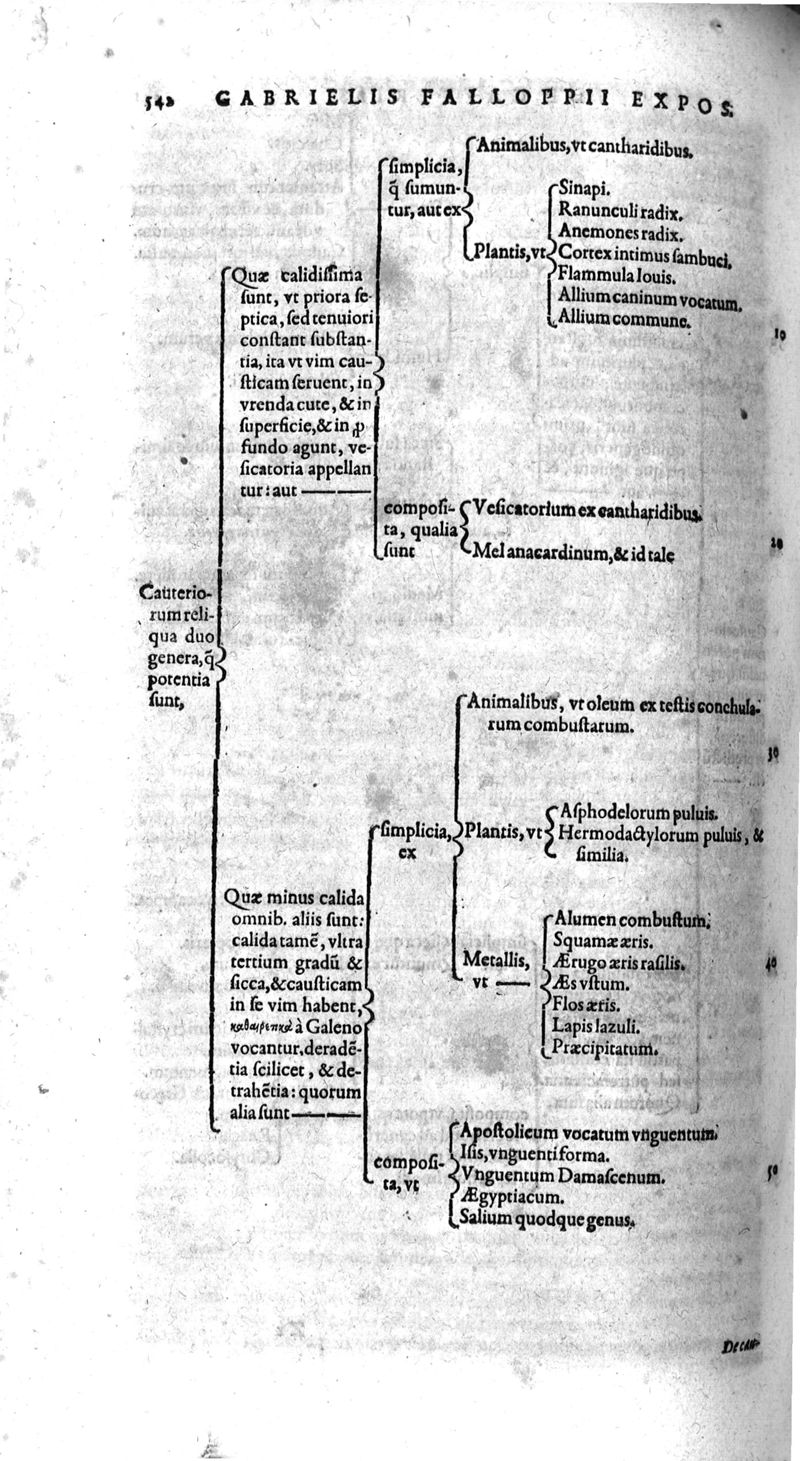 542 GABRIELIS FALLOPPII EXPOS.
Cauterio-
rum reli-
qua duo
genera, q̄
potentia
sunt,
Quæ calidissima
sunt, vt priora se-
ptica, sed tenuiori
constant substan-
tia, ita vt vim cau-
sticam seruent, in
vrenda cute, & in
superficie, & in ꝓ
fundo agunt, ve-
sicatoria appellan
tur: aut
simplicia,
q̄ sumun-
tur, aut ex
Animalibus, vt cantharidibus.
Plantis, vt
Sinapi.
Ranunculi radix.
Anemones radix.
Cortex intimus sambuci.
Flammula Iouis.
Allium caninum vocatum.
Allium commune.
10
composi-
ta, qualia
sunt
Vesicatorium ex cantharidibus.
Mel anacardinum, & id tale
20
Quæ minus calida
omnib. aliis sunt:
calida tamē, vltra
tertium gradū &
sicca, & causticam
in se vim habent,
à Galeno
vocantur. deradē-
tia scilicet, & de-
trahētia: quorum
alia sunt
simplicia,
ex
Animalibus, vt oleum ex testis conchula-
rum combustarum.
30
Plantis, vt
Asphodelorum puluis.
Hermodactylorum puluis, &
similia.
Metallis,
vt
Alumen combustum.
Squamæ æris.
Ærugo æris rasilis.
40
Æs vstum.
Flos æris.
Lapis lazuli.
Præcipitatum.
composi-
ta, vt
Apostolicum vocatum vnguentum.
Isis, vnguenti forma.
Vnguentum Damascenum.
50
Ægyptiacum.
Salium quodque genus.